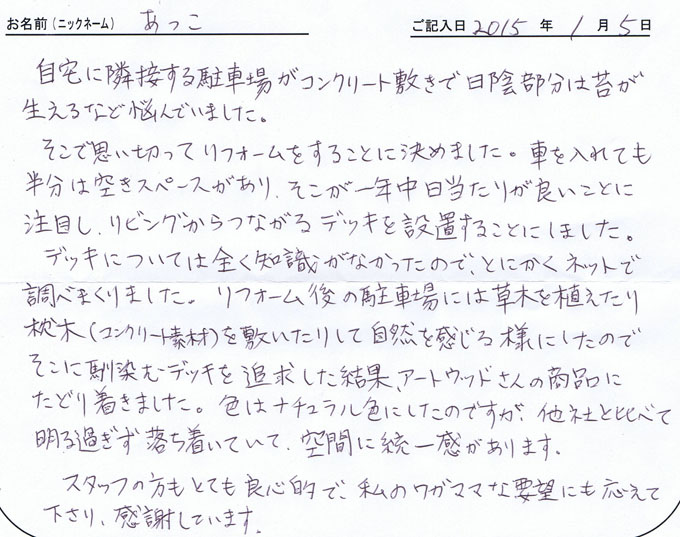 お名前(ニックネーム) あっこ ご記入日 2015 年 1 月 5 日
自宅に隣接する駐車場がコンクリート敷きで日陰部分は苔が
生えるなど悩んでいました。
そこで思い切ってリフォームをすることに決めました。車を入れても
半分は空きスペースがあり、そこが一年中日当たりが良いことに
注目し、リビングからつながるデッキを設置することにしました。
デッキについては全く知識がなかったので、とにかくネットで
調べまくりました。リフォーム後の駐車場には草木を植えたり
枕木(コンクリート素材)を敷いたりして自然を感じる様にしたので
そこに馴染むデッキを追求した結果、アートウッドさんの商品に
たどり着きました。色はナチュラル色にしたのですが、他社と比べて
明る過ぎず落ち着いていて、空間に統一感があります。
スタッフの方もとても良心的で、私のワガママな要望にも応えて
下さり、感謝しています。